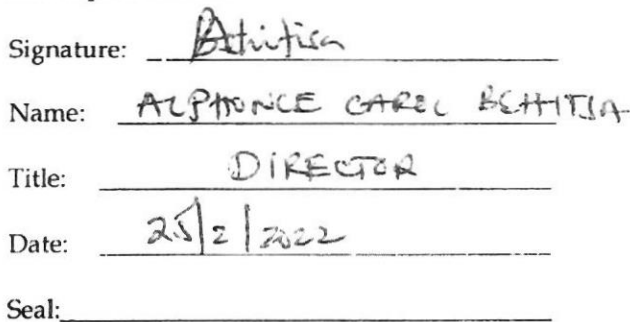 Signature:
Name: ALPHONCE CAREL BEHITSA
Title: DIRECTOR
Date: 25/2/2022
Seal: